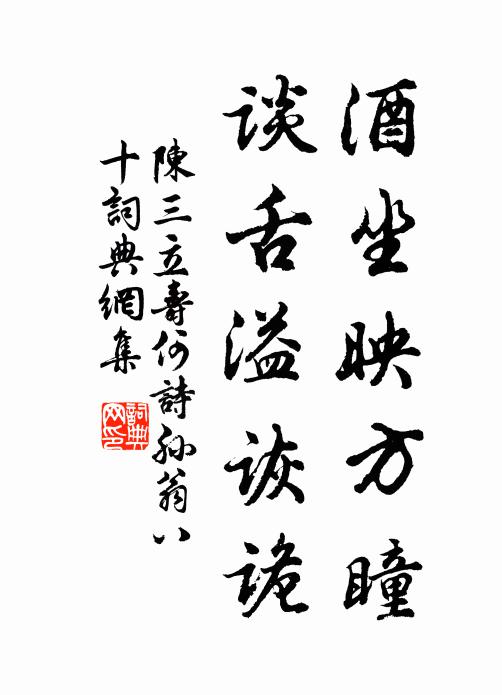 酒坐映方瞳
談舌溢詼詭
陳三立壽何詩孫翁八
十詞典網集
詞典网印